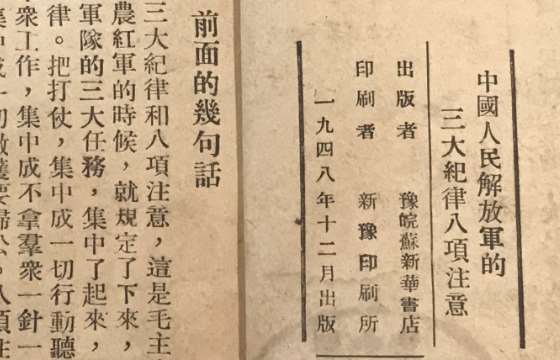 中國人民解放軍的
三大紀律八項注意
出版者 豫皖蘇新華書店
印刷者 新豫印刷所
一九四八年十二月出版
前面的幾句話
三大紀律和八項注意，這是毛主
農紅軍的時候，就規定了下來，
軍隊的三大任務，集中了起來，
律。把打仗，集中成一切行動聽
衆工作，集中成不拿羣衆一針一
集中成一切繳獲要歸公。八項注